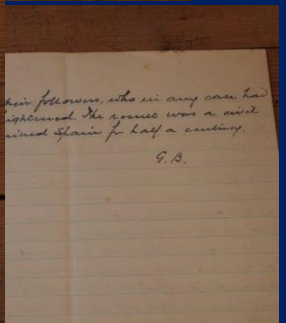 heir followers, who in any case had
ightened. The result was a civil
ruined Spain for half a century.
G. B.